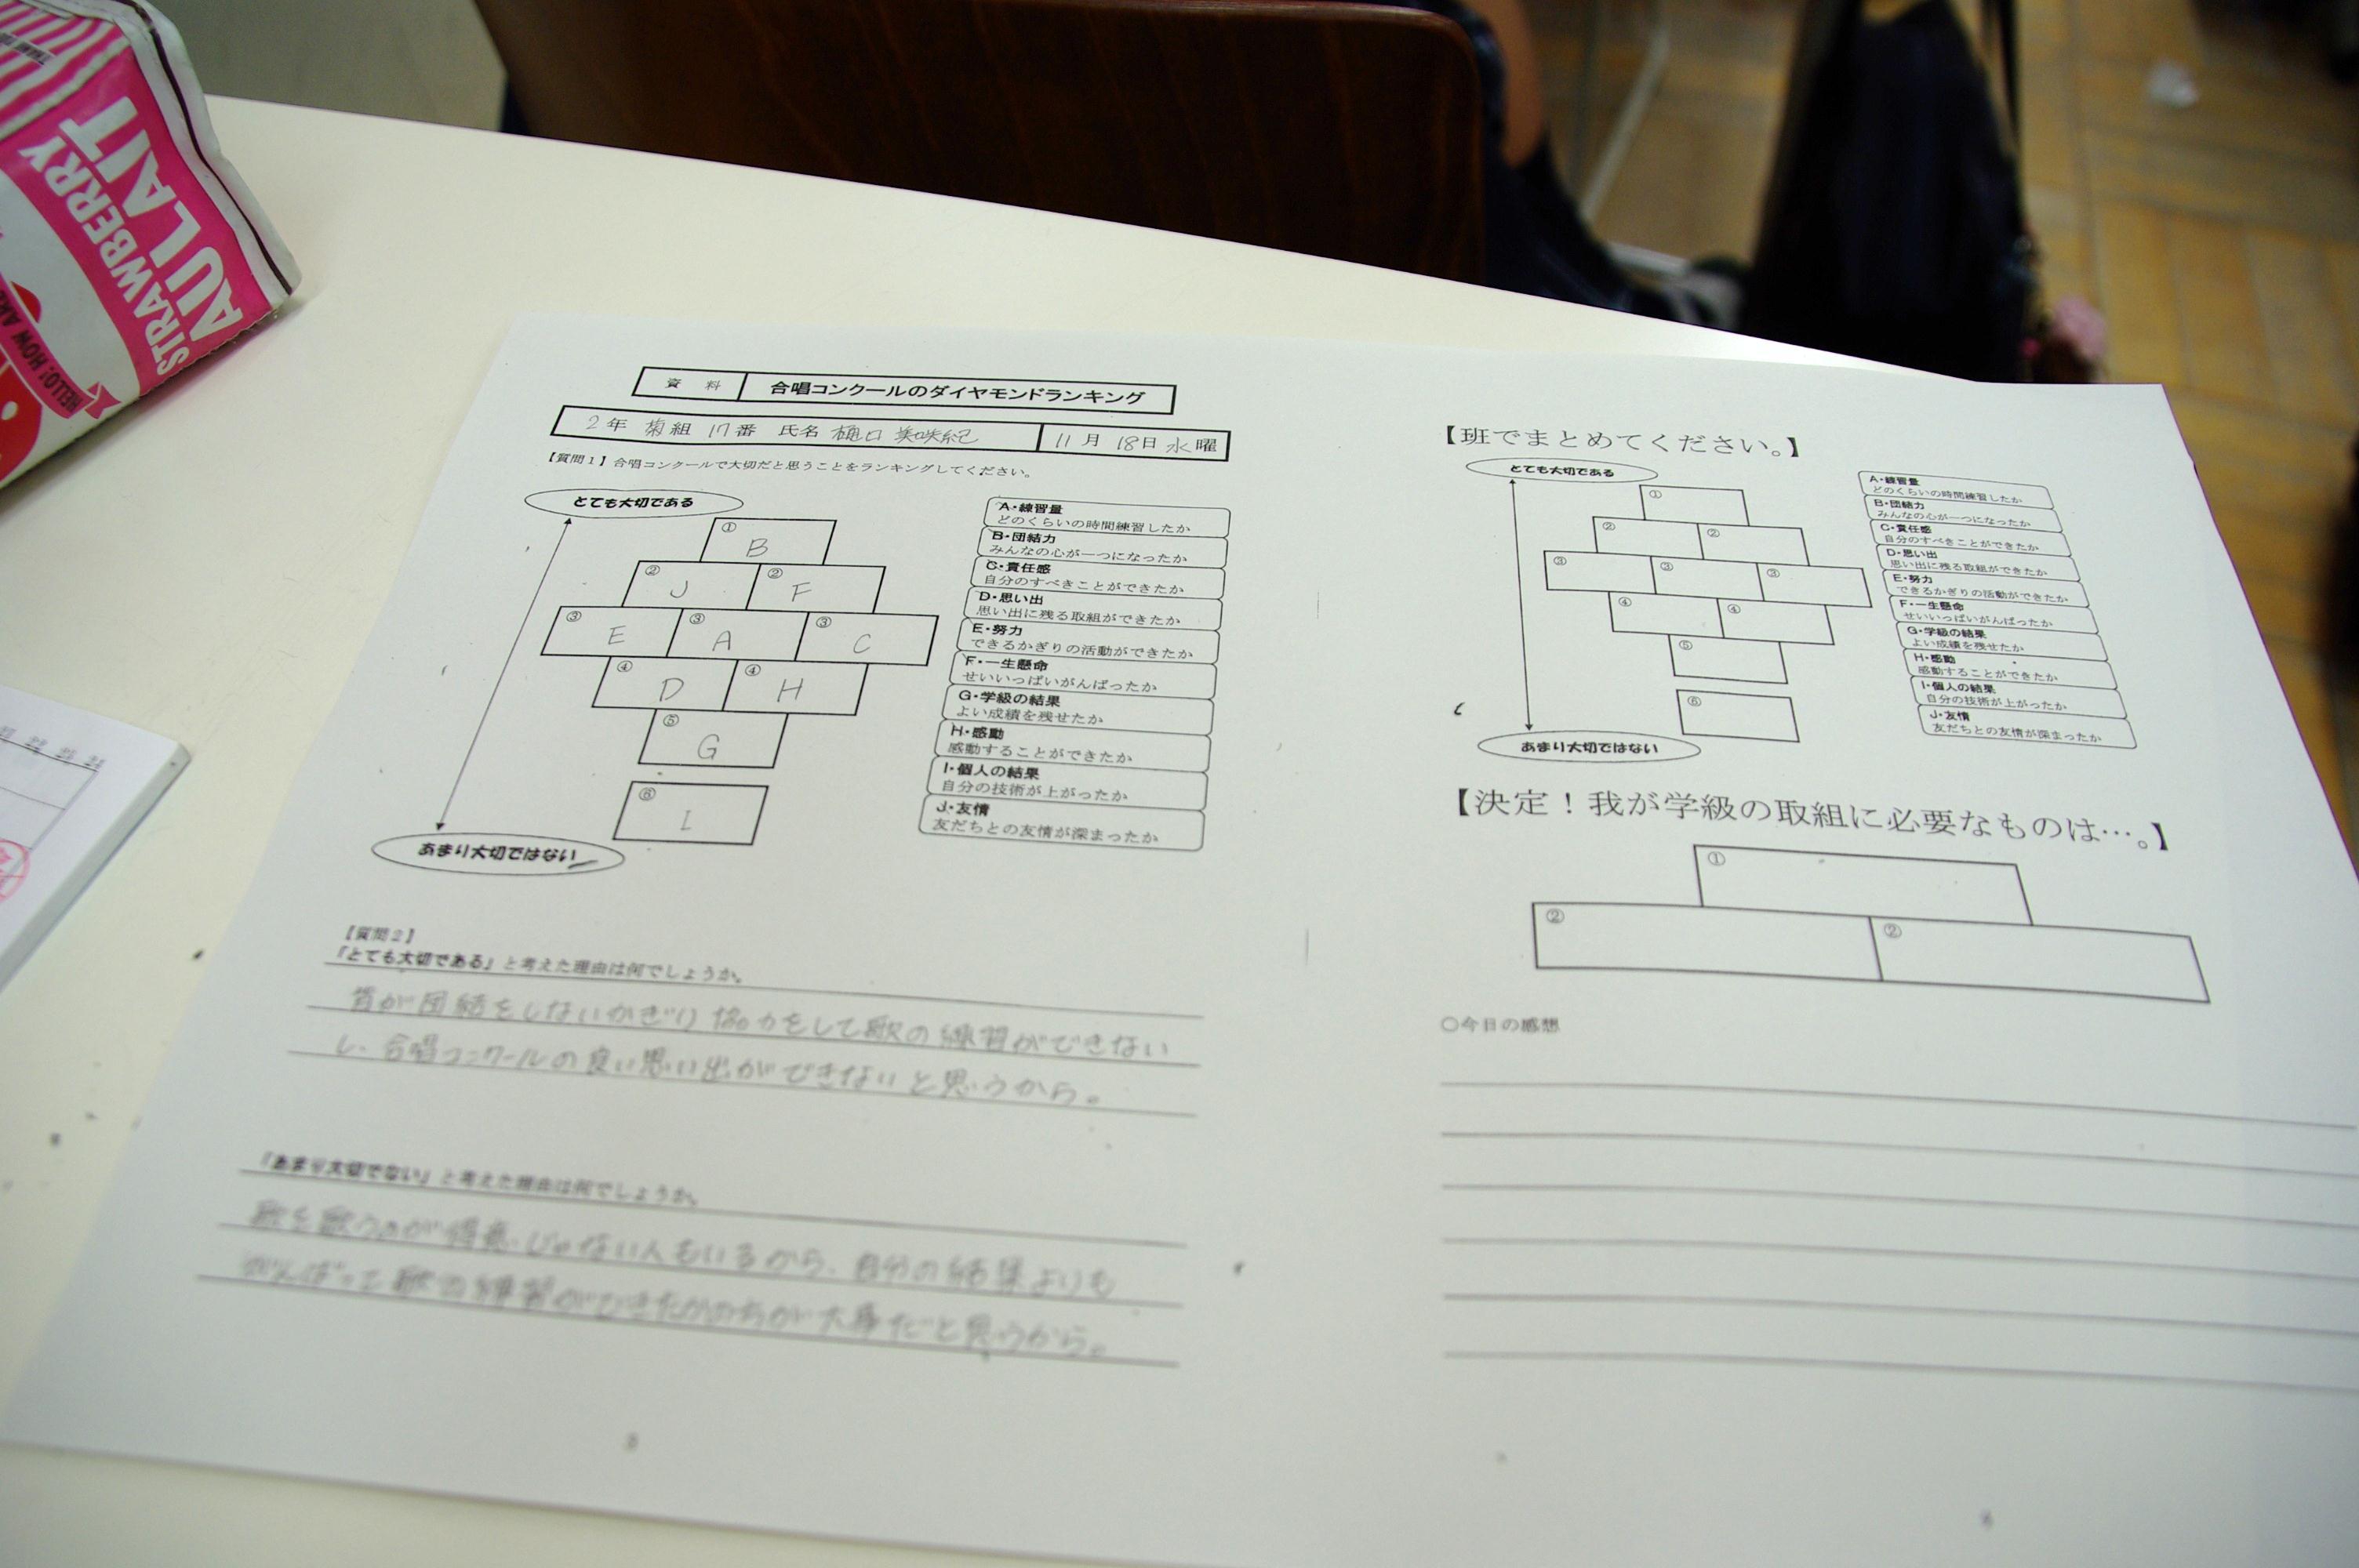 STRAWBERRY
AU LAIT
HELLO! HOW ARE
資料 合唱コンクールのダイヤモンドランキング
2年 菊組 17番 氏名 樋口 美咲紀 11月 18日 水曜
【質問1】合唱コンクールで大切だと思うことをランキングしてください。
とても大切である
① B
② J ② F
③ E ③ A ③ C
④ D ④ H
⑤ G
⑥ I
あまり大切ではない
A・練習量
どのくらいの時間練習したか
B・団結力
みんなの心が一つになったか
C・責任感
自分のすべきことができたか
D・思い出
思い出に残る取組ができたか
E・努力
できるかぎりの活動ができたか
F・一生懸命
せいいっぱいがんばったか
G・学級の結果
よい成績を残せたか
H・感動
感動することができたか
I・個人の結果
自分の技術が上がったか
J・友情
友だちとの友情が深まったか
【質問2】
「とても大切である」と考えた理由は何でしょうか。
皆が団結をしないかぎり協力をして歌の練習ができない
し、合唱コンクールの良い思い出ができないと思うから。
「あまり大切でない」と考えた理由は何でしょうか。
歌を歌うのが得意じゃない人もいるから、自分の結果よりも
がんばって歌の練習ができたかの方が大事だと思うから。
【班でまとめてください。】
とても大切である
①
② ②
③ ③ ③
④ ④
⑤
⑥
あまり大切ではない
A・練習量
どのくらいの時間練習したか
B・団結力
みんなの心が一つになったか
C・責任感
自分のすべきことができたか
D・思い出
思い出に残る取組ができたか
E・努力
できるかぎりの活動ができたか
F・一生懸命
せいいっぱいがんばったか
G・学級の結果
よい成績を残せたか
H・感動
感動することができたか
I・個人の結果
自分の技術が上がったか
J・友情
友だちとの友情が深まったか
【決定！我が学級の取組に必要なものは…。】
①
② ②
○今日の感想